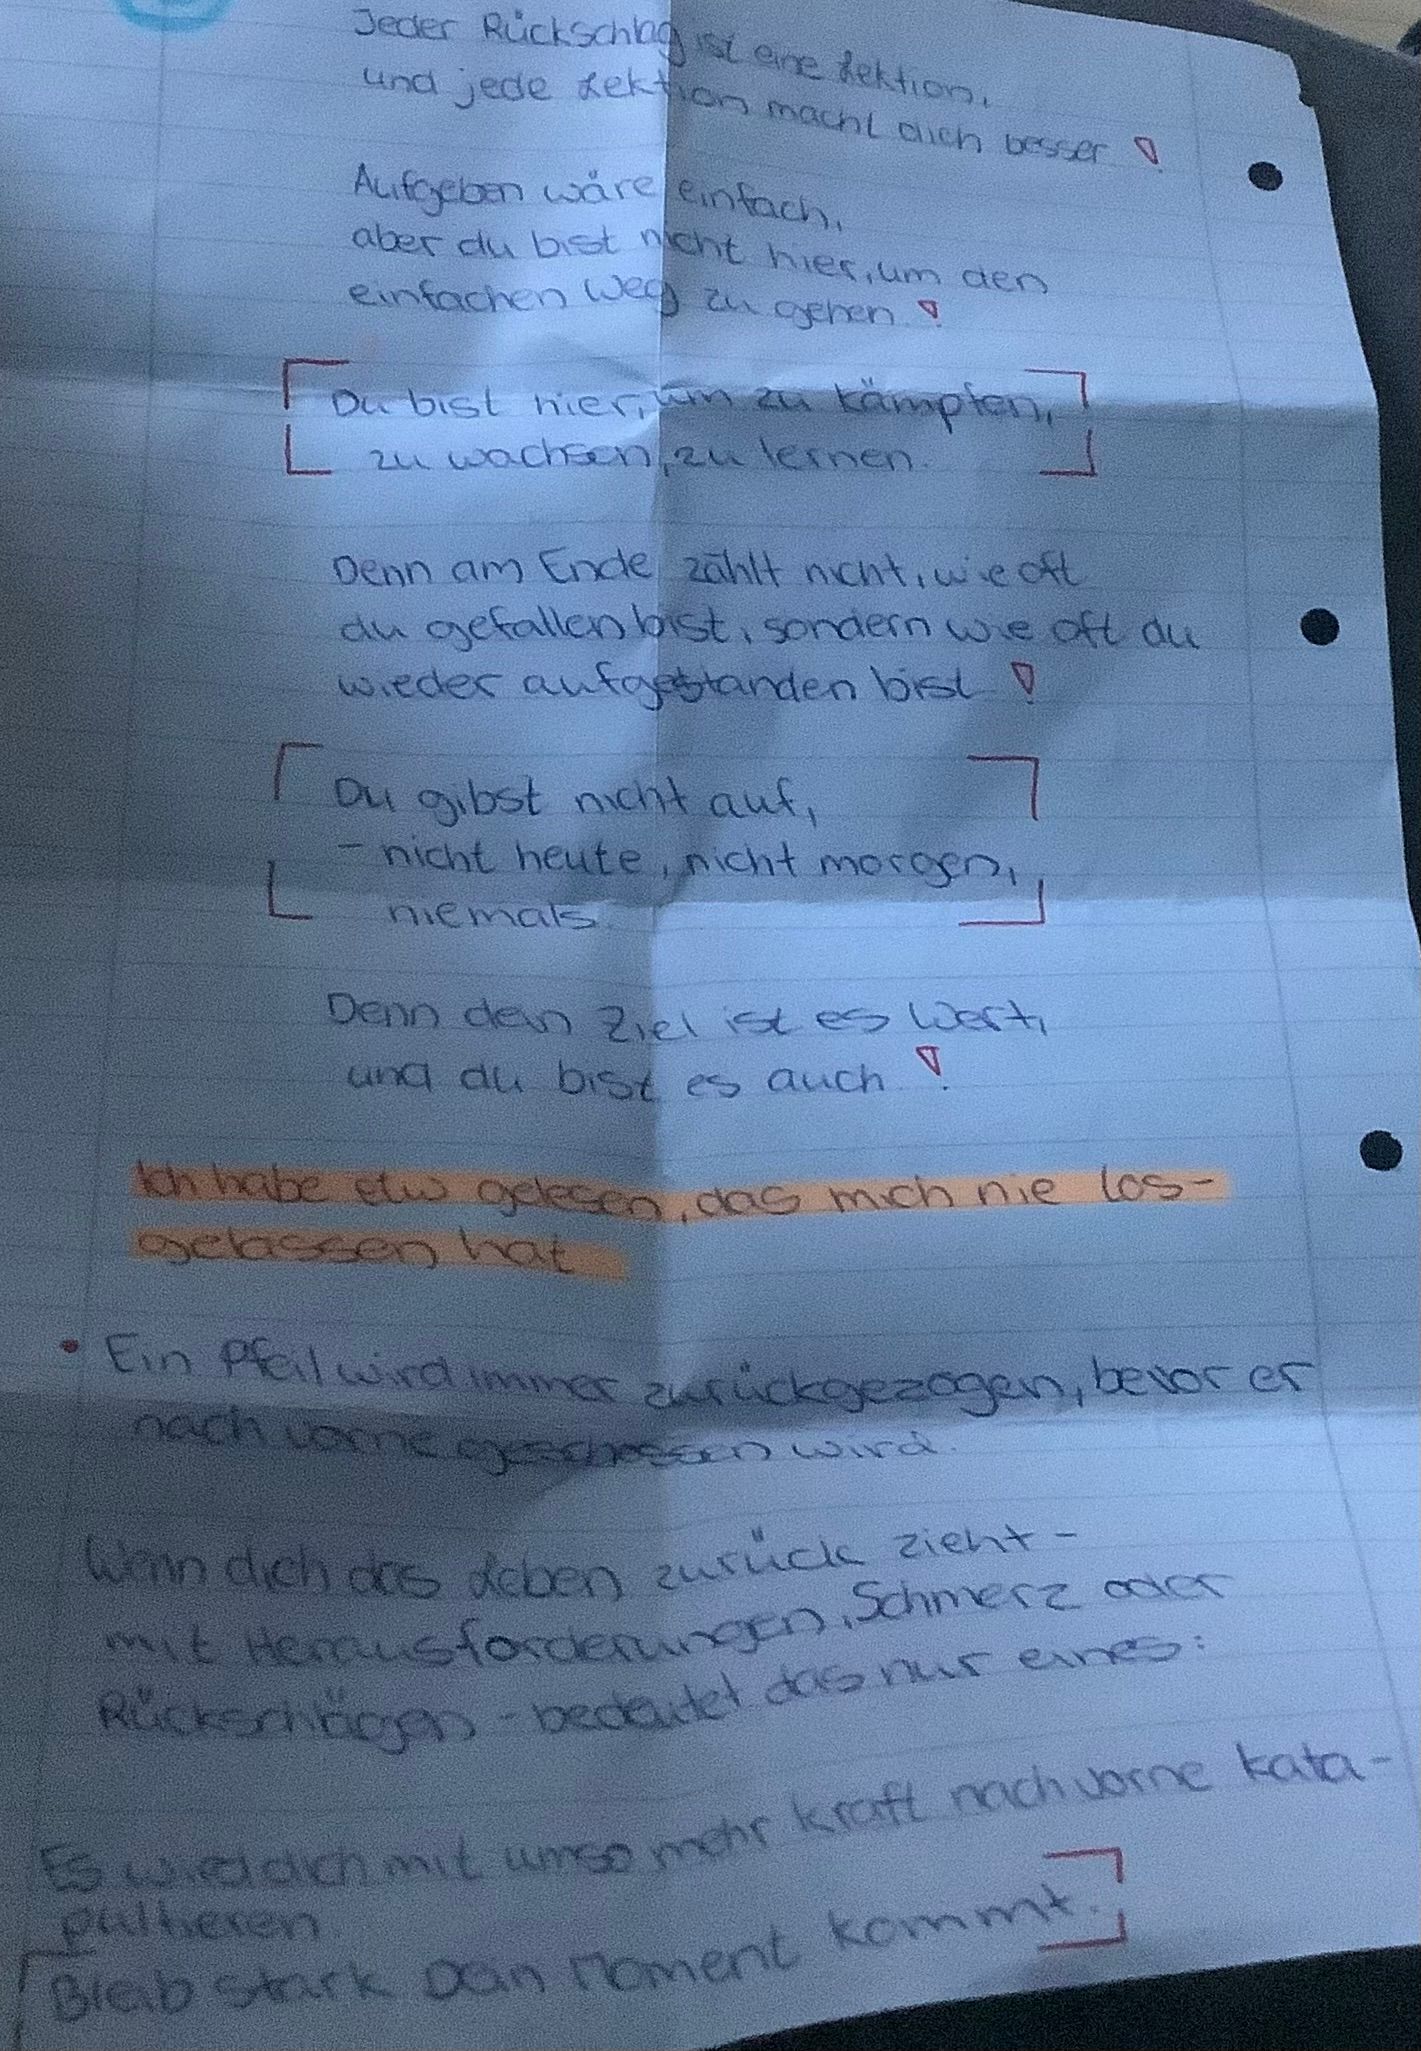 Jeder Rückschlag ist eine Lektion,
und jede Lektion macht dich besser !
Aufgeben wäre einfach,
aber du bist nicht hier, um den
einfachen Weg zu gehen !
Du bist hier, um zu kämpfen,
zu wachsen, zu lernen.
Denn am Ende zählt nicht, wie oft
du gefallen bist, sondern wie oft du
wieder aufgestanden bist !
Du gibst nicht auf,
- nicht heute, nicht morgen,
niemals.
Denn dein Ziel ist es Wert,
und du bist es auch !
Ich habe etw gelesen, das mich nie los-
gelassen hat
• Ein Pfeil wird immer zurückgezogen, bevor er
nach vorne geschossen wird.
Wenn dich das Leben zurück zieht -
mit Herausforderungen, Schmerz oder
Rückschlägen - bedeutet das nur eines:
Es wird dich mit umso mehr kraft nach vorne kata-
pultieren.
Bleib stark Dein Moment kommt.